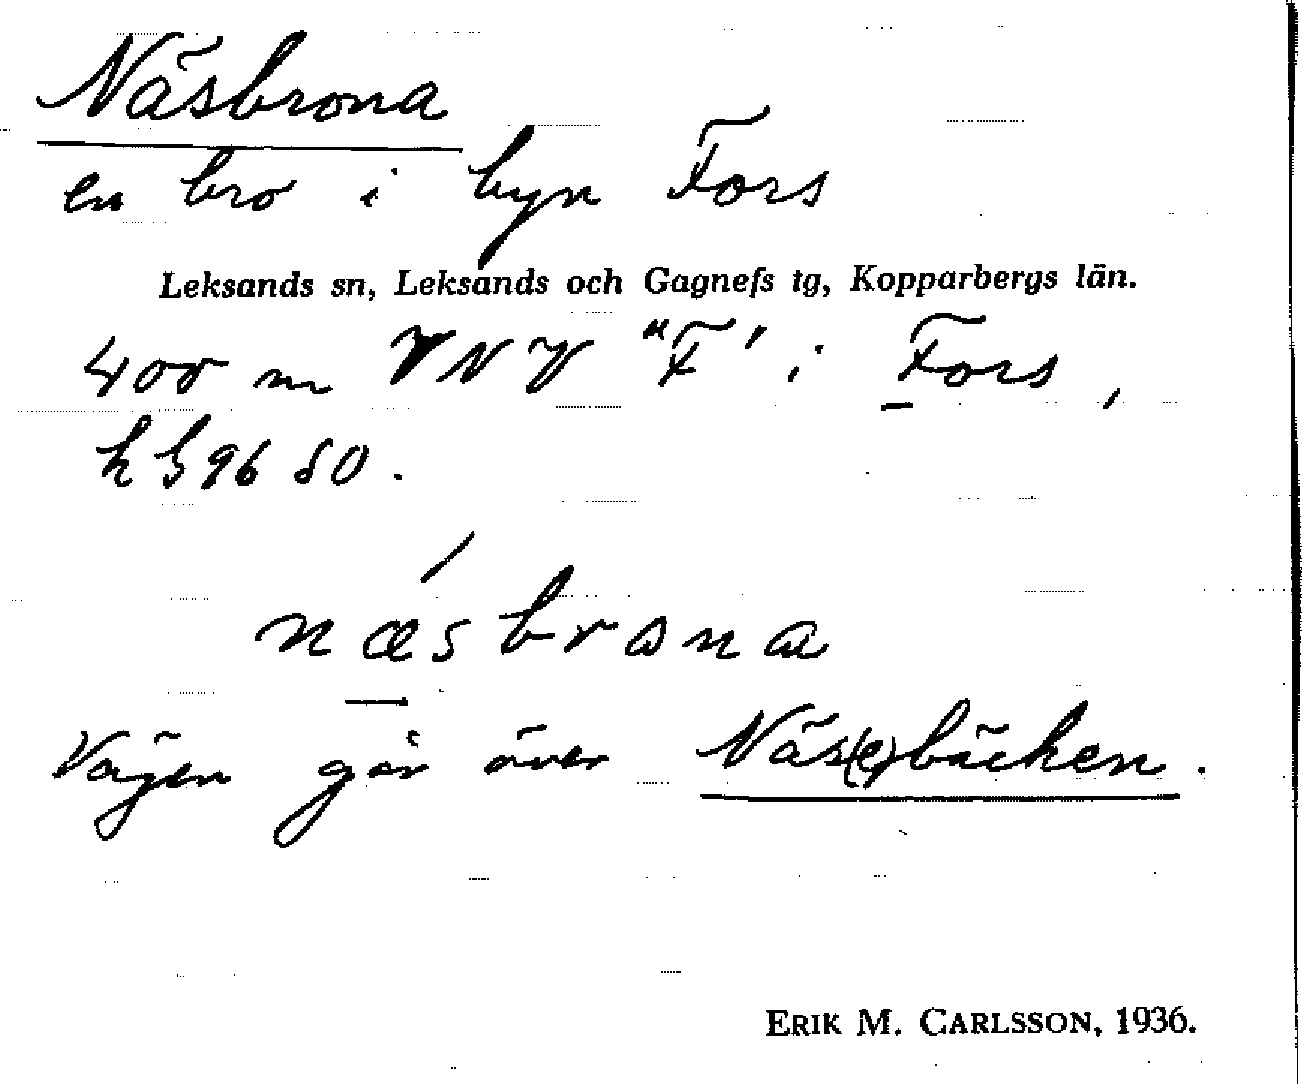 Näsbrona
en bro i byn Fors
Leksands sn, Leksands och Gagnefs tg, Kopparbergs län.
400 m VNV "F" i Fors,
næsbrona
Vägen går över Näs(e)bäcken.
ERIK M. CARLSSON, 1936.